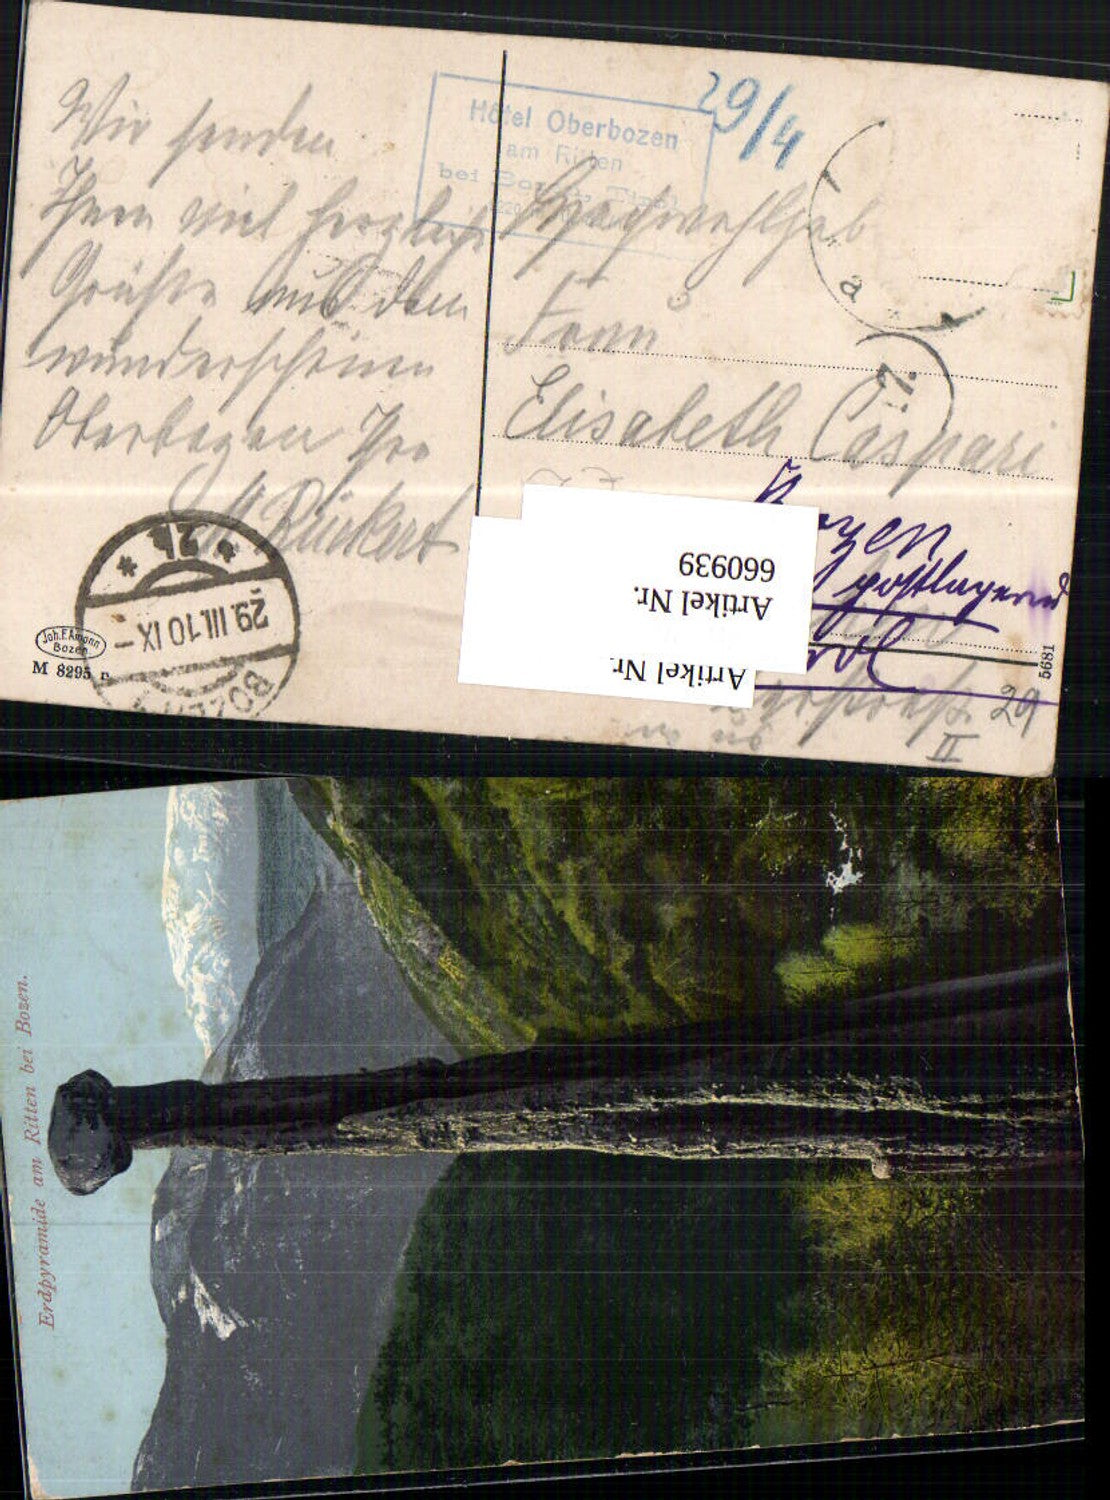 Wir senden
Ihnen viel herzliche
Grüße aus dem
wunderschönen
Oberbozen Ihre
M Rückert
Hôtel Oberbozen
am Ritten
bei Bozen, Tirol
29/4
Frau
Elisabeth Caspari
Bozen
postlagernd
Artikel Nr.
660939
Artikel Nr.
29. III. 10 IX -
BOZEN
Joh. F. Amonn
Bozen
M 8295
5681
29
II
Erdpyramide am Ritten bei Bozen.